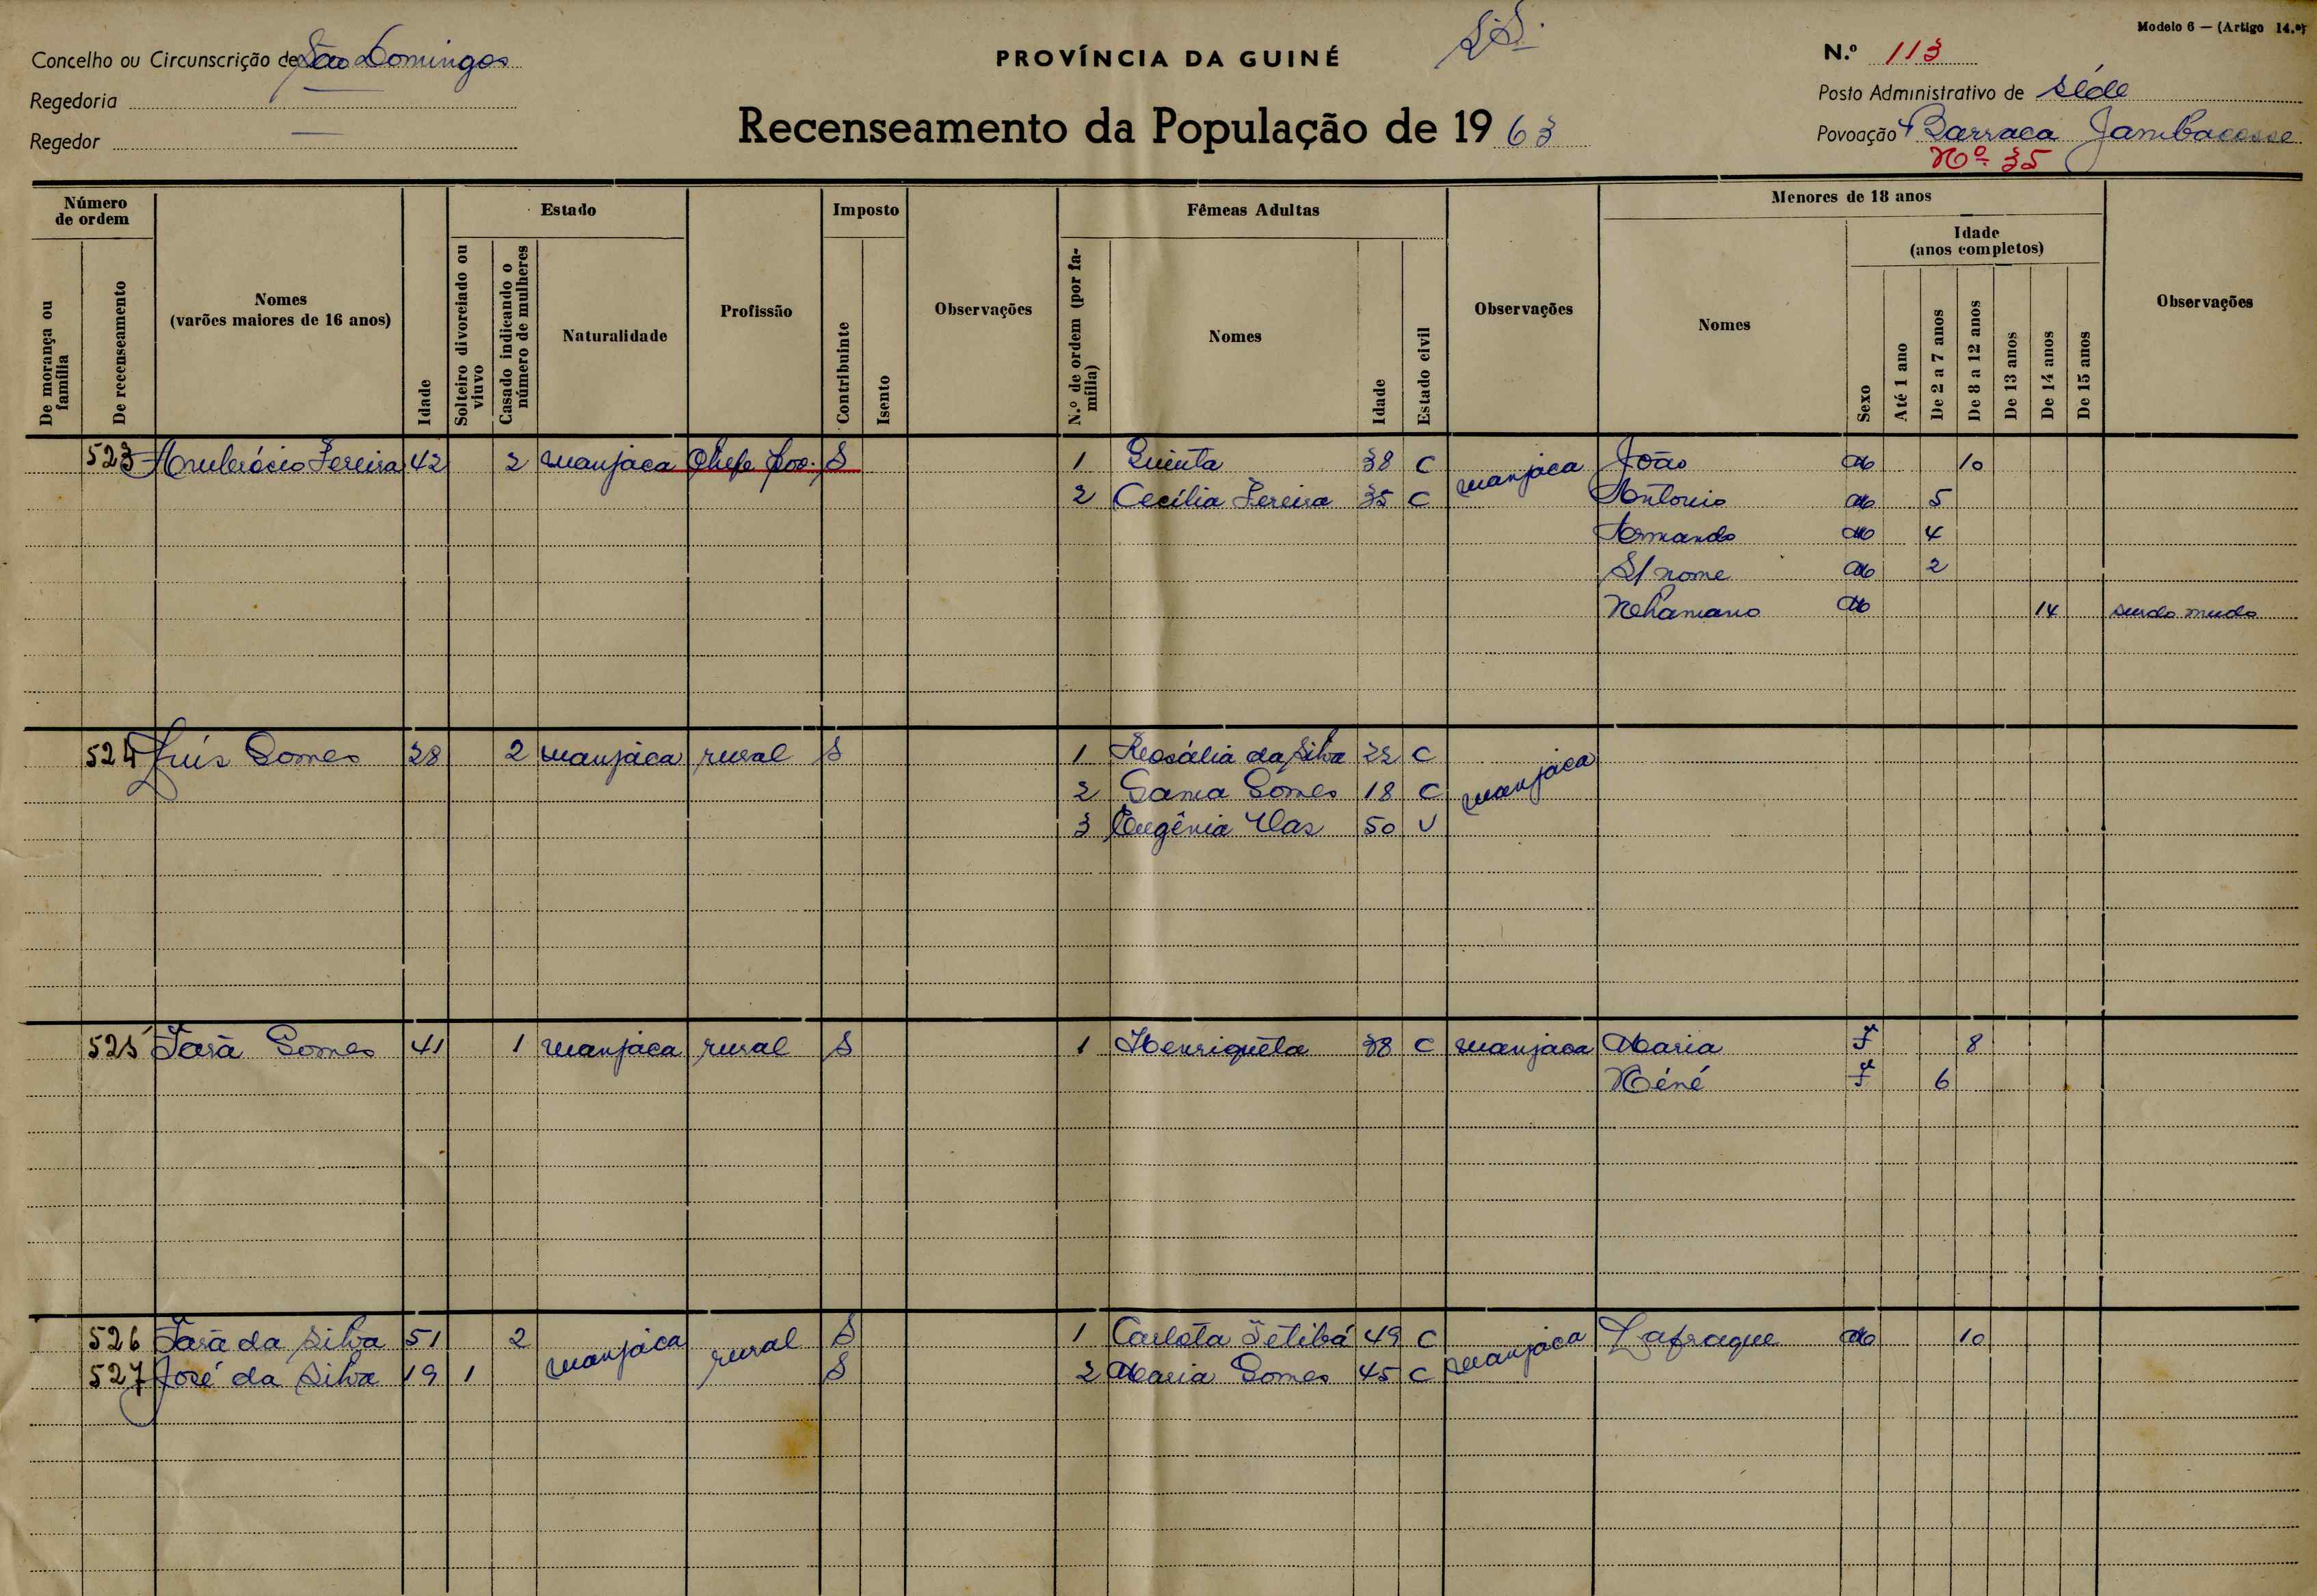 Modelo 6 — (Artigo 14.º)
Concelho ou Circunscrição de São Domingos
PROVÍNCIA DA GUINÉ
N.º 113
Regedoria
Posto Administrativo de Séde
Regedor
Recenseamento da População de 1963
Povoação Barraca Jambacosse
Nº 35
Número de ordem
De morança ou família
De recenseamento
Nomes
(varões maiores de 16 anos)
Idade
Estado
Solteiro divorciado ou viuvo
Casado indicando o número de mulheres
Naturalidade
Profissão
Imposto
Contribuinte
Isento
Observações
Fêmeas Adultas
N.º de ordem (por família)
Nomes
Idade
Estado civil
Observações
Menores de 18 anos
Nomes
Sexo
Idade
(anos completos)
Até 1 ano
De 2 a 7 anos
De 8 a 12 anos
De 13 anos
De 14 anos
De 15 anos
Observações
523 Ambrósio Pereira 42 2 manjaca Chefe pov. S 1 Quinta 38 C manjaca João M 10
2 Cecília Pereira 35 C Antonio M 5
Armando M 4
S/ nome M 2
Nhamano M 14 surdo mudo
524 Luís Gomes 28 2 manjaca rural S 1 Rosália da Silva 22 C manjaca
2 Gama Gomes 18 C
3 Eugênia Vaz 50 V
525 Gomes 41 1 manjaca rural S 1 Henriquêta 38 C manjaca Maria F 8
Néné F 6
526 da Silva 51 2 manjaca rural S 1 Carlota 49 C manjaca Lafraque M 10
527 José da Silva 19 1 S 2 Maria Gomes 45 C